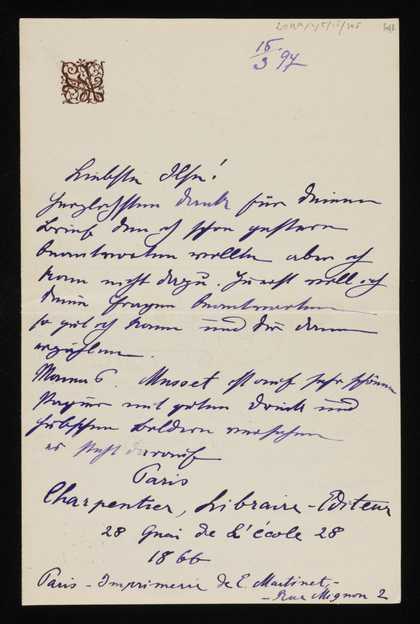 15/3 97
Liebste Ilse!
Herzlichsten Dank für Deinen
Brief den ich schon gestern
beantworten wollte aber ich
kam nicht dazu. Zuerst will ich
Deine Fragen beantworten
so gut ich kann und Dir dann
erzählen.
Musset ist auf sehr schönem
Papier mit gutem Druck und
hübschen Bildern versehen
es steht darauf
Paris
Charpentier, Libraire-Editeur
28 Quai de L'école 28
1866
Paris - Imprimerie de E. Martinet, -
- Rue Mignon 2